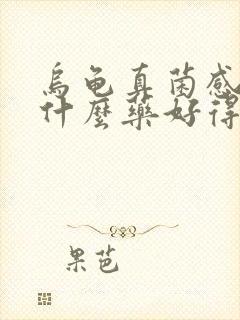 烏龜真菌感
什麼藥好得
果芭